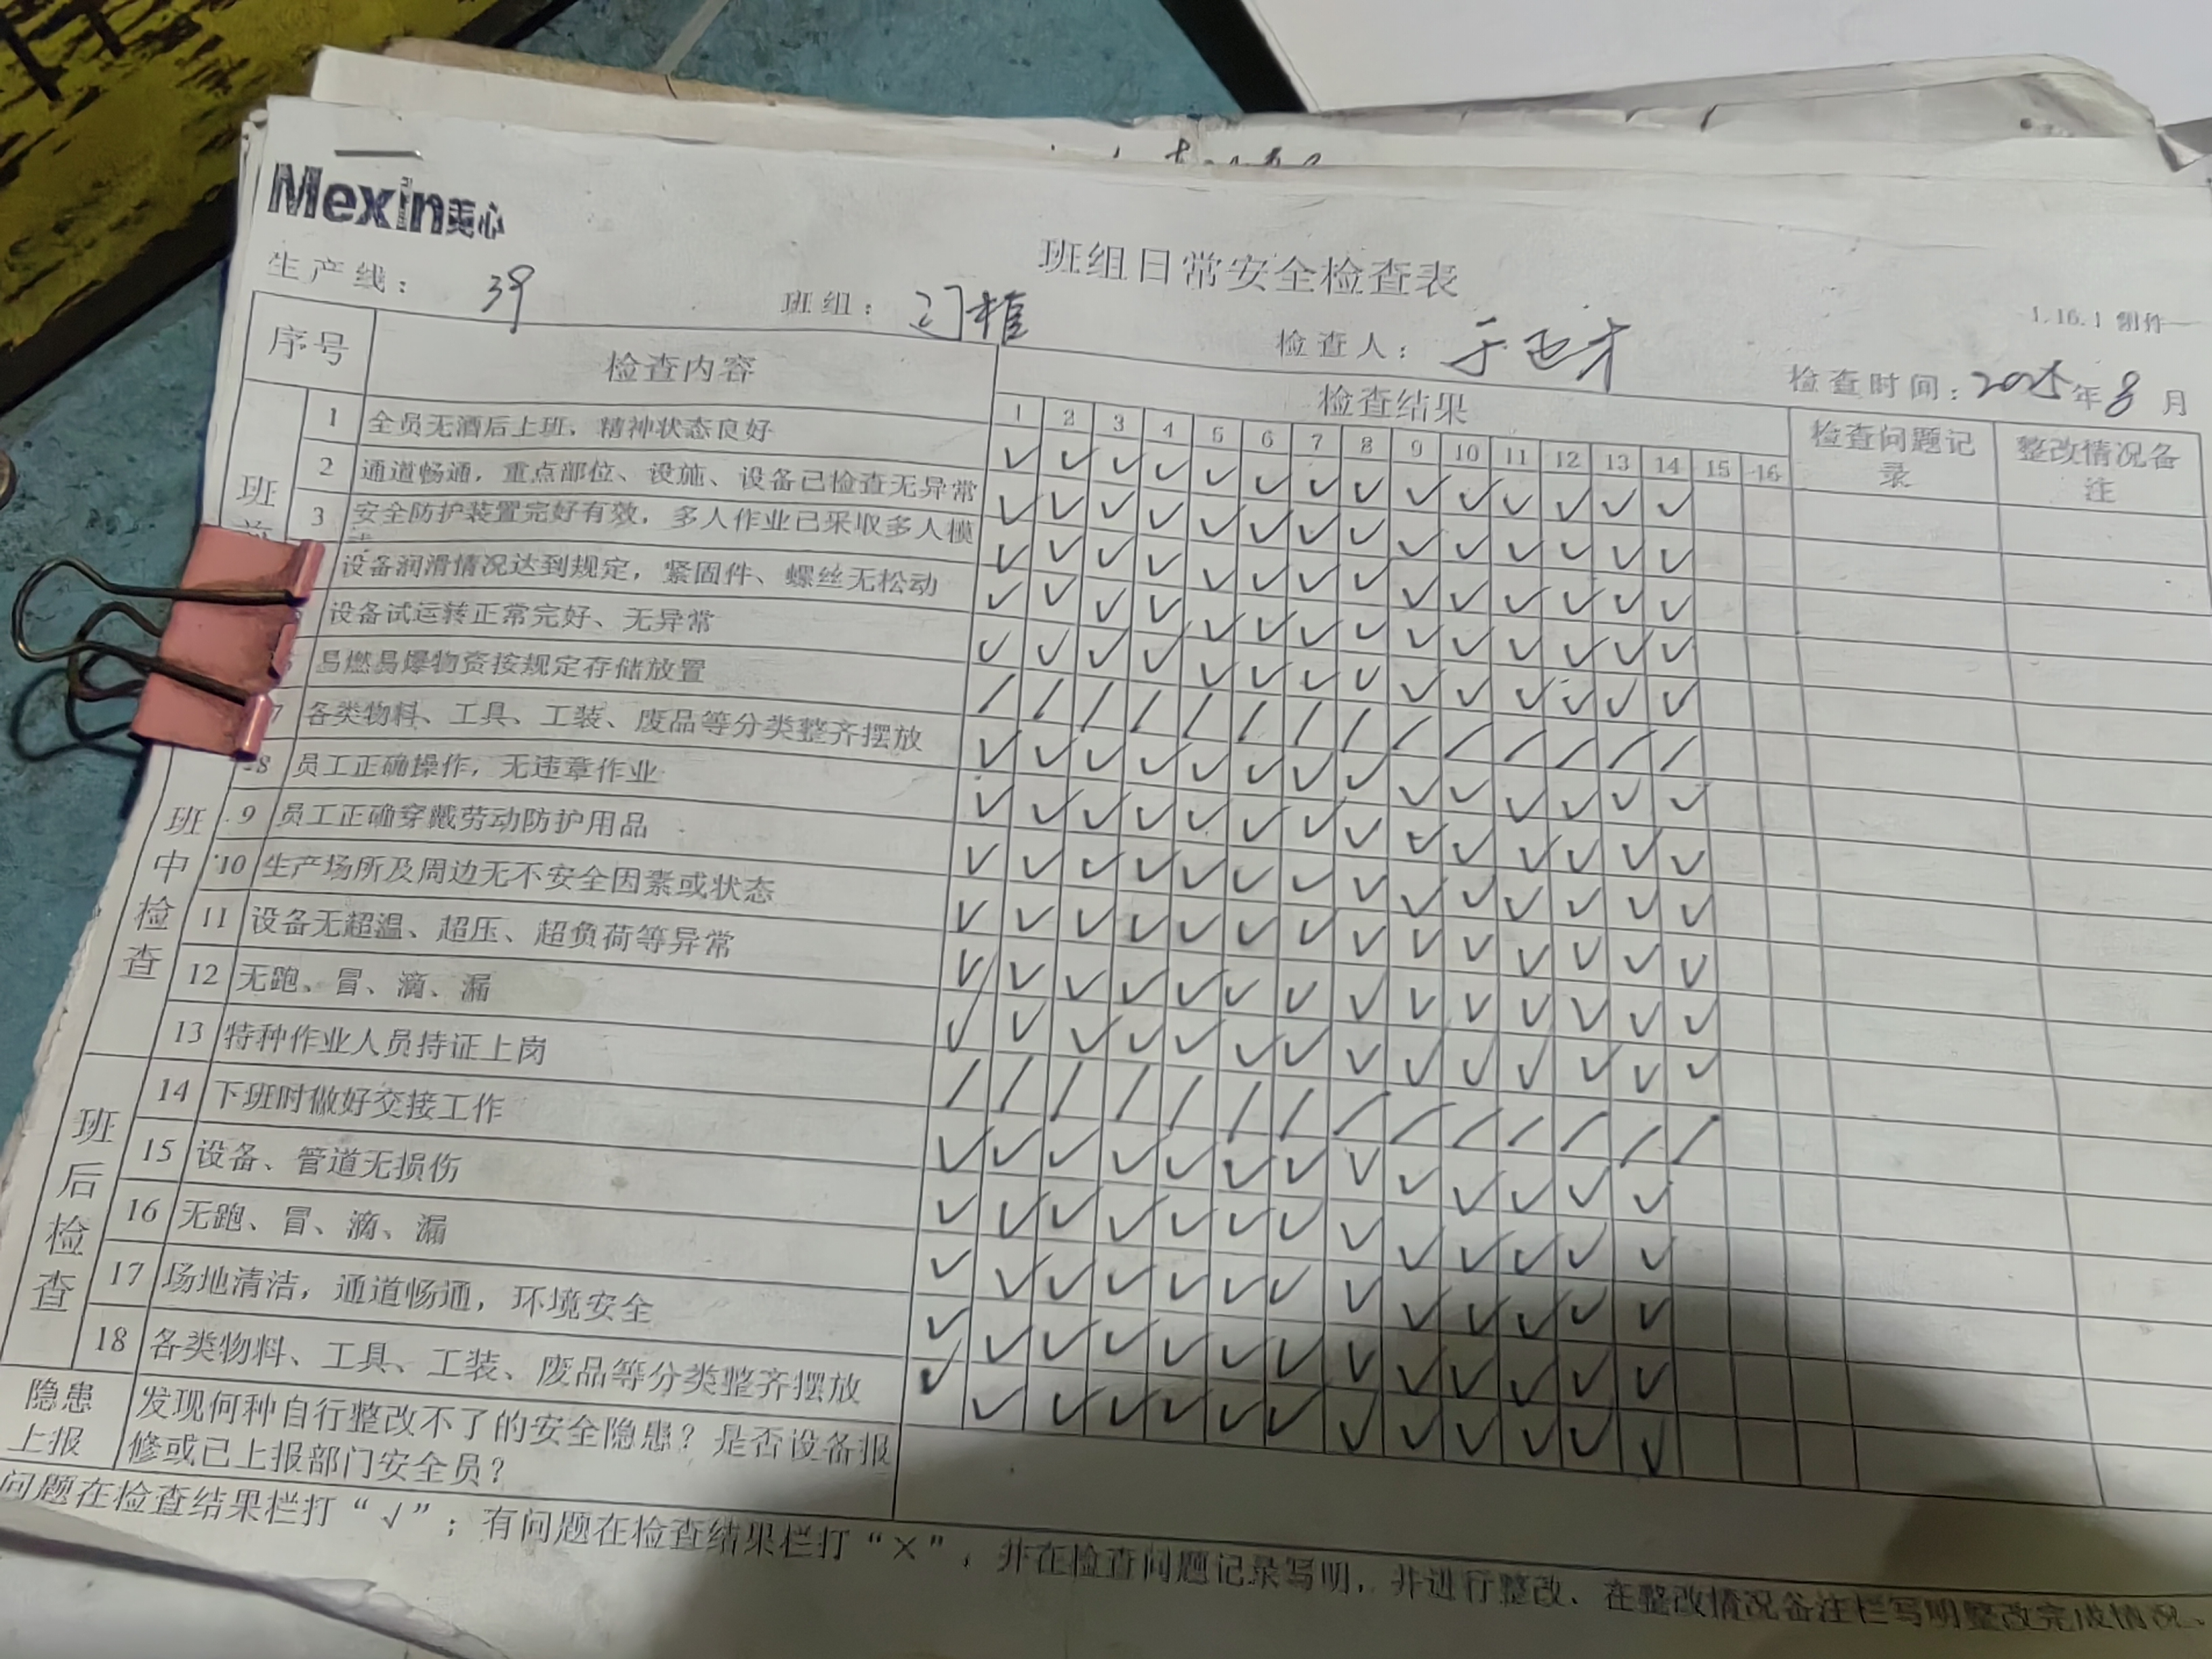 Mexin美心
班组日常安全检查表
1.16.1 附件一
生产线: 39 班组: 门框 检查人: 检查时间: 2025年8月
序号 检查内容 检查结果 检查问题记录 整改情况备注
1 2 3 4 5 6 7 8 9 10 11 12 13 14 15 16
班
1 全员无酒后上班、精神状态良好 ✓ ✓ ✓ ✓ ✓ ✓ ✓ ✓ ✓ ✓ ✓ ✓ ✓ ✓
2 通道畅通,重点部位、设施、设备已检查无异常 ✓ ✓ ✓ ✓ ✓ ✓ ✓ ✓ ✓ ✓ ✓ ✓ ✓ ✓
3 安全防护装置完好有效,多人作业已采取多人模 ✓ ✓ ✓ ✓ ✓ ✓ ✓ ✓ ✓ ✓ ✓ ✓ ✓ ✓
设备润滑情况达到规定,紧固件、螺丝无松动 ✓ ✓ ✓ ✓ ✓ ✓ ✓ ✓ ✓ ✓ ✓ ✓ ✓ ✓
设备试运转正常完好、无异常 ✓ ✓ ✓ ✓ ✓ ✓ ✓ ✓ ✓ ✓ ✓ ✓ ✓ ✓
易燃易爆物资按规定存储放置 / / / / / / / / / / / / / /
7 各类物料、工具、工装、废品等分类整齐摆放 ✓ ✓ ✓ ✓ ✓ ✓ ✓ ✓ ✓ ✓ ✓ ✓ ✓ ✓
班中检查
8 员工正确操作,无违章作业 ✓ ✓ ✓ ✓ ✓ ✓ ✓ ✓ ✓ ✓ ✓ ✓ ✓ ✓
9 员工正确穿戴劳动防护用品 ✓ ✓ ✓ ✓ ✓ ✓ ✓ ✓ ✓ ✓ ✓ ✓ ✓ ✓
10 生产场所及周边无不安全因素或状态 ✓ ✓ ✓ ✓ ✓ ✓ ✓ ✓ ✓ ✓ ✓ ✓ ✓ ✓
11 设备无超温、超压、超负荷等异常 ✓ ✓ ✓ ✓ ✓ ✓ ✓ ✓ ✓ ✓ ✓ ✓ ✓ ✓
12 无跑、冒、滴、漏 ✓ ✓ ✓ ✓ ✓ ✓ ✓ ✓ ✓ ✓ ✓ ✓ ✓ ✓
13 特种作业人员持证上岗 / / / / / / / / / / / / / /
班后检查
14 下班时做好交接工作 ✓ ✓ ✓ ✓ ✓ ✓ ✓ ✓ ✓ ✓ ✓ ✓ ✓
15 设备、管道无损伤 ✓ ✓ ✓ ✓ ✓ ✓ ✓ ✓ ✓ ✓ ✓ ✓ ✓
16 无跑、冒、滴、漏 ✓ ✓ ✓ ✓ ✓ ✓ ✓ ✓ ✓ ✓ ✓ ✓ ✓
17 场地清洁,通道畅通,环境安全 ✓ ✓ ✓ ✓ ✓ ✓ ✓ ✓ ✓ ✓ ✓ ✓ ✓
18 各类物料、工具、工装、废品等分类整齐摆放 ✓ ✓ ✓ ✓ ✓ ✓ ✓ ✓ ✓ ✓ ✓ ✓ ✓
隐患上报
发现何种自行整改不了的安全隐患?是否设备报
修或已上报部门安全员?
问题在检查结果栏打“√”;有问题在检查结果栏打“×”,并在检查问题记录写明,并进行整改,在整改情况备注栏写明整改完成情况。